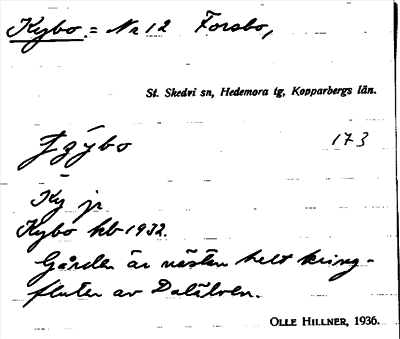 Kybo = Nr 12 Forsbo,
St. Skedvi sn, Hedemora tg, Kopparbergs län.
173
Ky jr
Kybo kb 1932.
Gården är nästan helt kring-
fluten av Dalälven.
OLLE HILLNER, 1936.